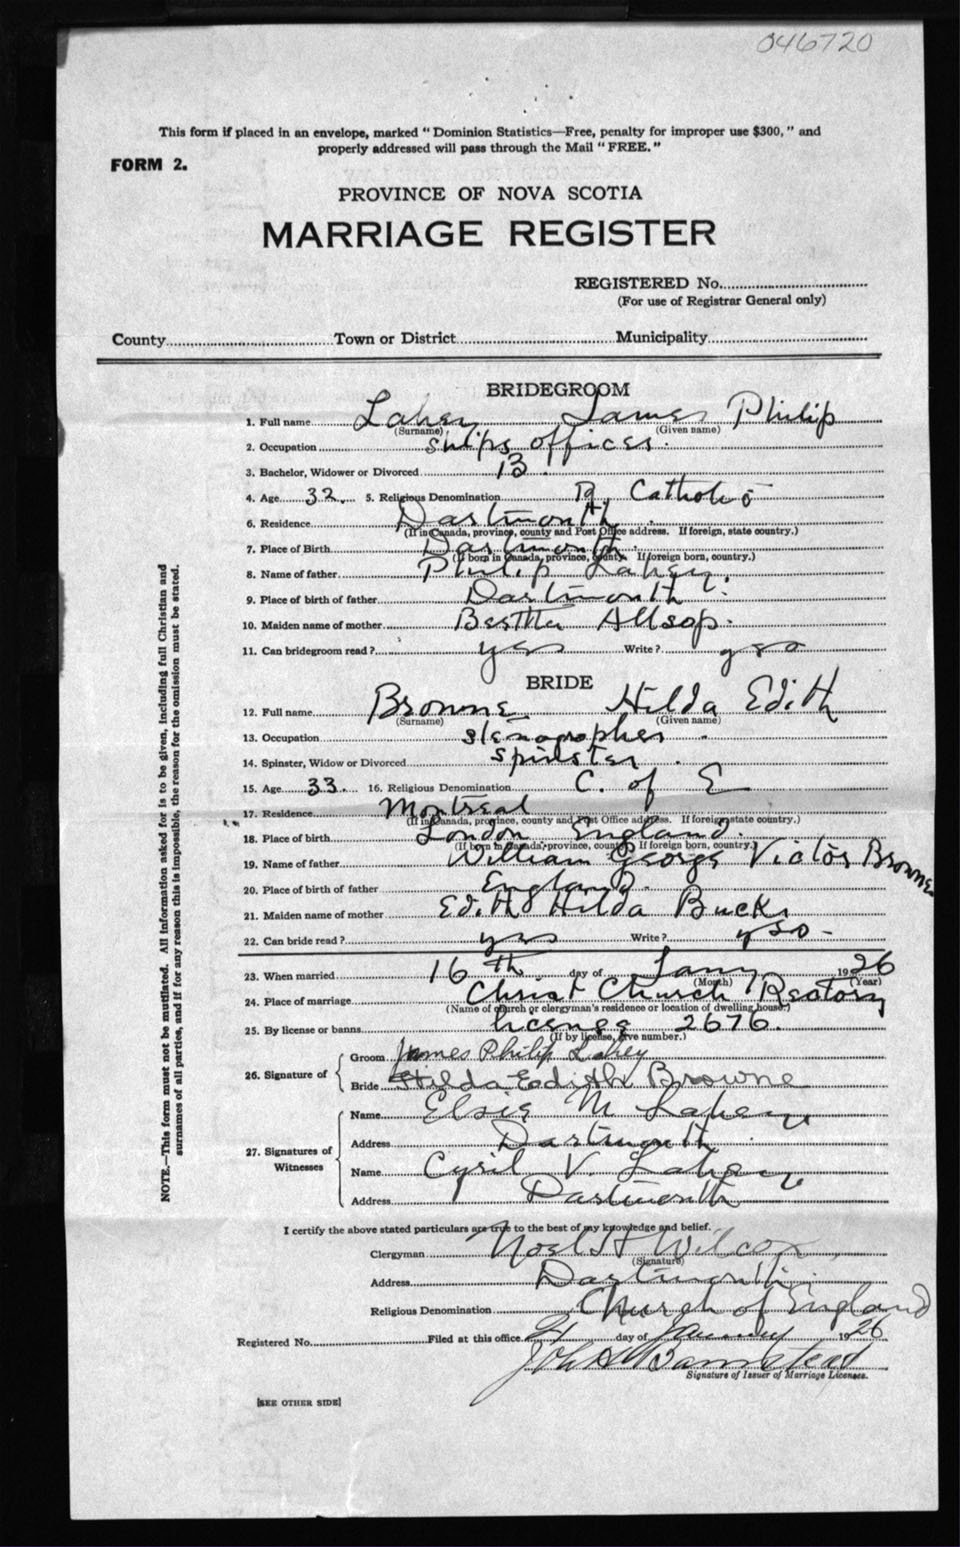 046720
This form if placed in an envelope, marked "Dominion Statistics—Free, penalty for improper use $300," and
properly addressed will pass through the Mail "FREE."
FORM 2.
PROVINCE OF NOVA SCOTIA
MARRIAGE REGISTER
REGISTERED No.
(For use of Registrar General only)
County Town or District Municipality
BRIDEGROOM
1. Full name Lahey James Philip
(Surname) (Given name)
2. Occupation ships officer.
3. Bachelor, Widower or Divorced B.
4. Age 32. 5. Religious Denomination R. Catholic
6. Residence Dartmouth
(If in Canada, province, county and Post Office address. If foreign, state country.)
7. Place of Birth Dartmouth.
(If born in Canada, province, county. If foreign born, country.)
8. Name of father Philip Lahey.
9. Place of birth of father Dartmouth
10. Maiden name of mother Bertha Allsop.
11. Can bridegroom read? yes Write? yes
BRIDE
12. Full name Browne Hilda Edith
(Surname) (Given name)
13. Occupation stenographer.
14. Spinster, Widow or Divorced spinster.
15. Age 33. 16. Religious Denomination C. of E
17. Residence Montreal
(If in Canada, province, county and Post Office address. If foreign state country.)
18. Place of birth London England.
(If born in Canada, province, county. If foreign born, country.)
19. Name of father William George Victor Browne
20. Place of birth of father England.
21. Maiden name of mother Edith Hilda Bucks
22. Can bride read? yes Write? yes -
23. When married 16 th day of Jany 1926
(Month) (Year)
24. Place of marriage Christ Church Rectory
(Name of church or clergyman's residence or location of dwelling house.)
25. By license or banns license 2676.
(If by license, give number.)
26. Signature of Groom James Philip Lahey
Bride Hilda Edith Browne
27. Signatures of Witnesses Name Elsie M Lahey
Address Dartmouth.
Name Cyril V. Lahey
Address Dartmouth
I certify the above stated particulars are true to the best of my knowledge and belief.
Clergyman Noel H Wilcox
(Signature)
Address Dartmouth.
Religious Denomination Church of England
Registered No. Filed at this office 21 day of January 1926
John Bannstead
Signature of Issuer of Marriage Licenses.
[SEE OTHER SIDE]
NOTE.—This form must not be mutilated. All information asked for is to be given, including full Christian and
surnames of all parties, and if for any reason this is impossible, the reason for the omission must be stated.